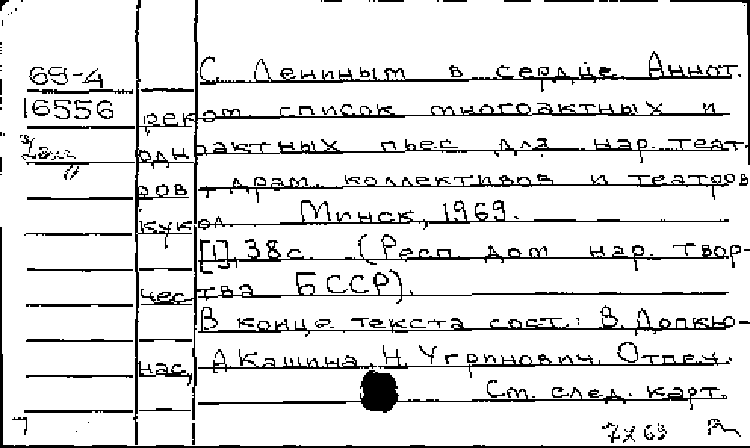 69-4 С Лениным в сердце. Аннот.
16556 реком. список многоактных и
одноактных пьес для нар. театров
ров, драм. коллективов и театров
кукол. Минск, 1969.
[1], 38 с. (Респ. дом нар. твор-
чества БССР).
В конце текста сост.: В. Допкю-
нас, А Кашина, Н. Угринович. Отпеч.
См. след. карт.
7 X 69